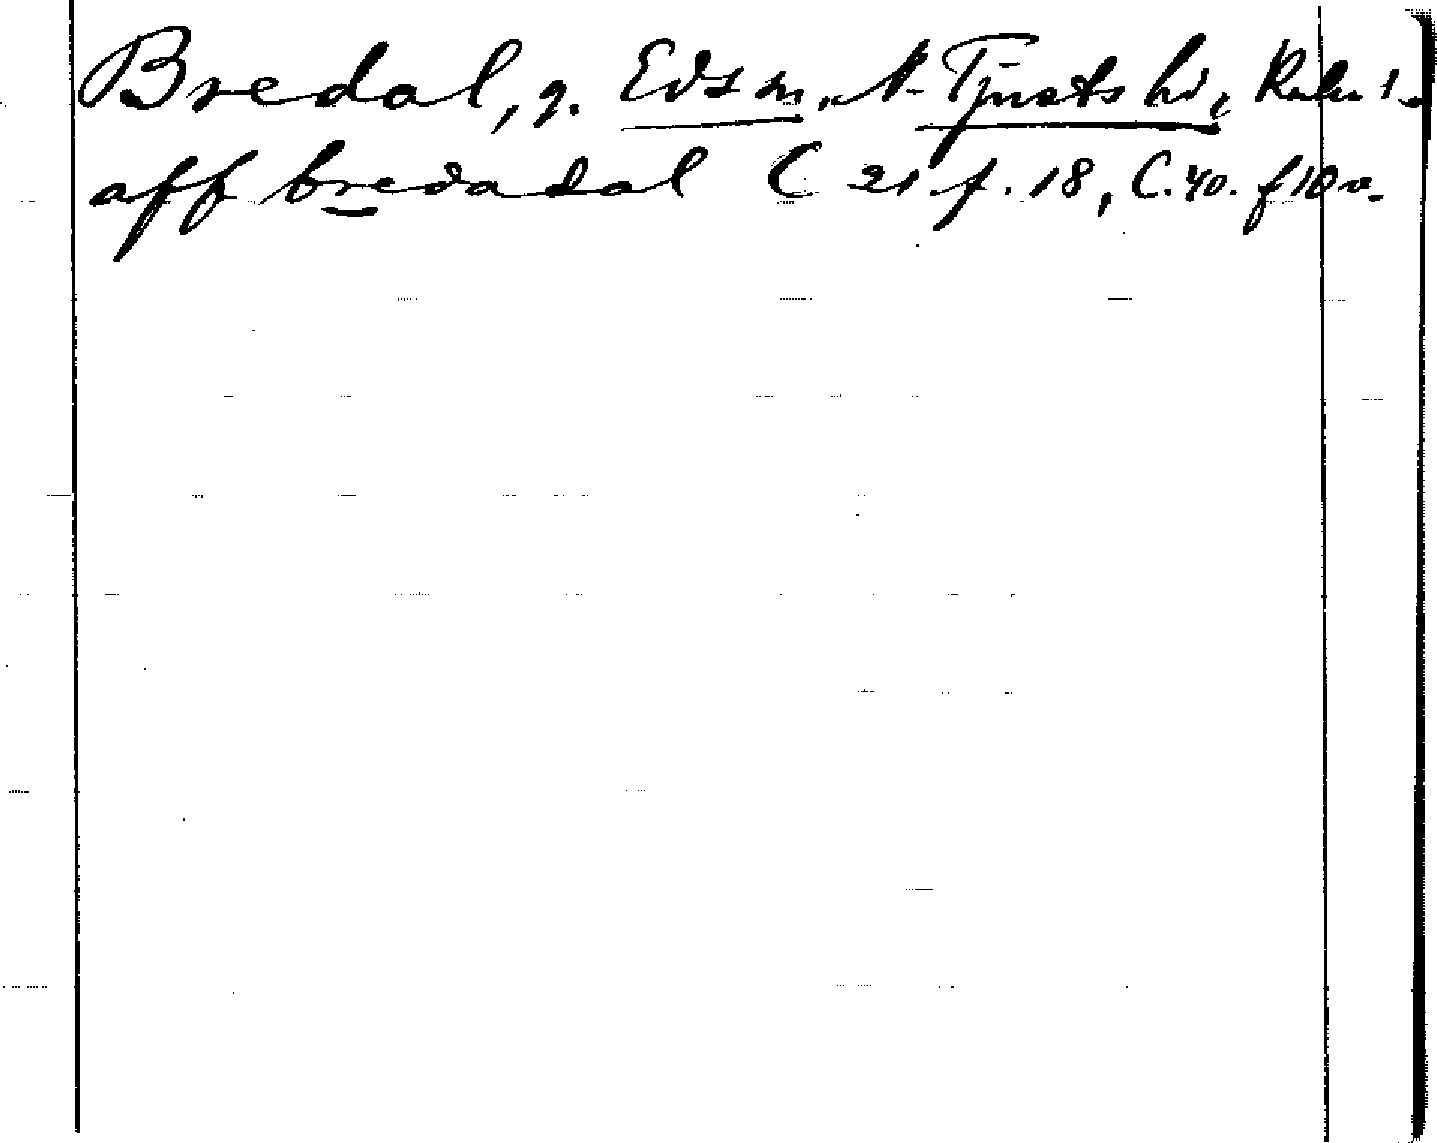 Bredal, g. Eds sn, N. Tjusts hd,
aff bredadal C 21 f. 18, C. 40. f 10 v.